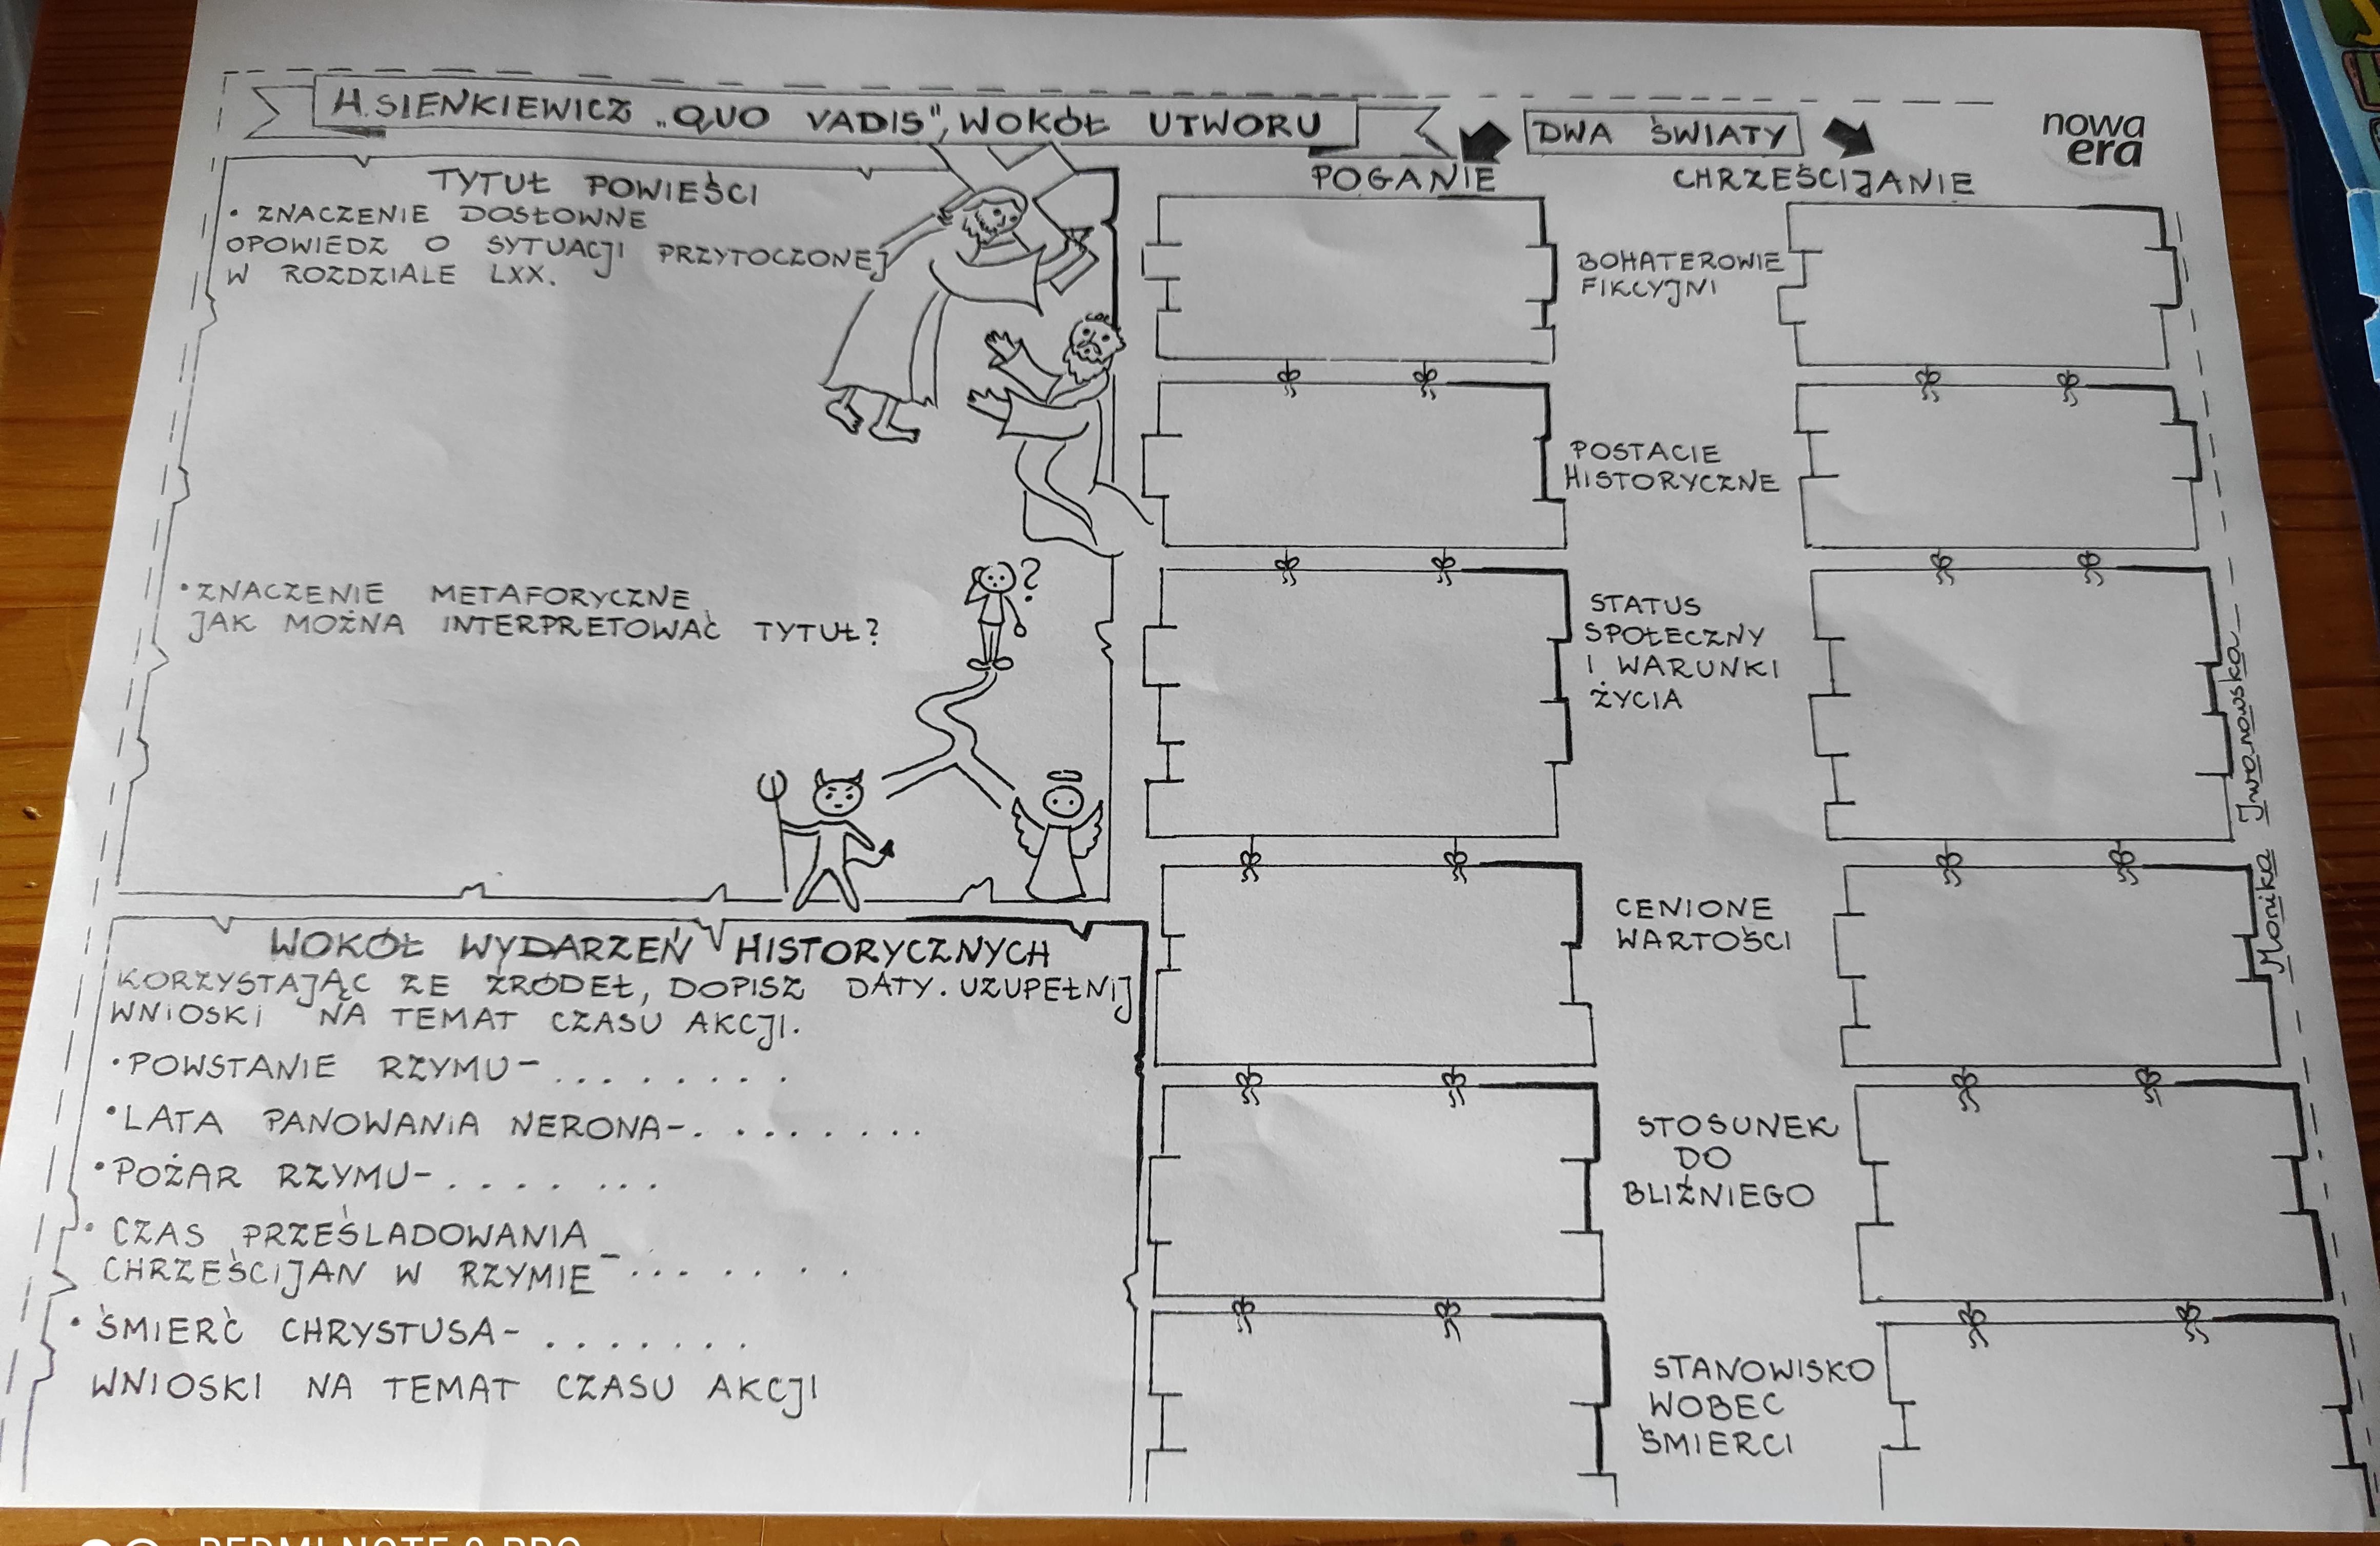 H. SIENKIEWICZ „QUO VADIS", WOKÓŁ UTWORU
DWA ŚWIATY
nowa
era
TYTUŁ POWIEŚCI
• ZNACZENIE DOSŁOWNE
OPOWIEDZ O SYTUACJI PRZYTOCZONEJ
W ROZDZIALE LXX.
?
• ZNACZENIE METAFORYCZNE
JAK MOŻNA INTERPRETOWAĆ TYTUŁ?
WOKÓŁ WYDARZEŃ HISTORYCZNYCH
KORZYSTAJĄC ZE ŹRÓDEŁ, DOPISZ DATY. UZUPEŁNIJ
WNIOSKI NA TEMAT CZASU AKCJI.
• POWSTANIE RZYMU - ........
• LATA PANOWANIA NERONA - ........
• POŻAR RZYMU - .......
• CZAS PRZEŚLADOWANIA
CHRZEŚCIJAN W RZYMIE - .......
• ŚMIERĆ CHRYSTUSA - .......
WNIOSKI NA TEMAT CZASU AKCJI
POGANIE
CHRZEŚCIJANIE
BOHATEROWIE
FIKCYJNI
POSTACIE
HISTORYCZNE
STATUS
SPOŁECZNY
I WARUNKI
ŻYCIA
CENIONE
WARTOŚCI
STOSUNEK
DO
BLIŹNIEGO
STANOWISKO
WOBEC
ŚMIERCI
Monika Iwanowska